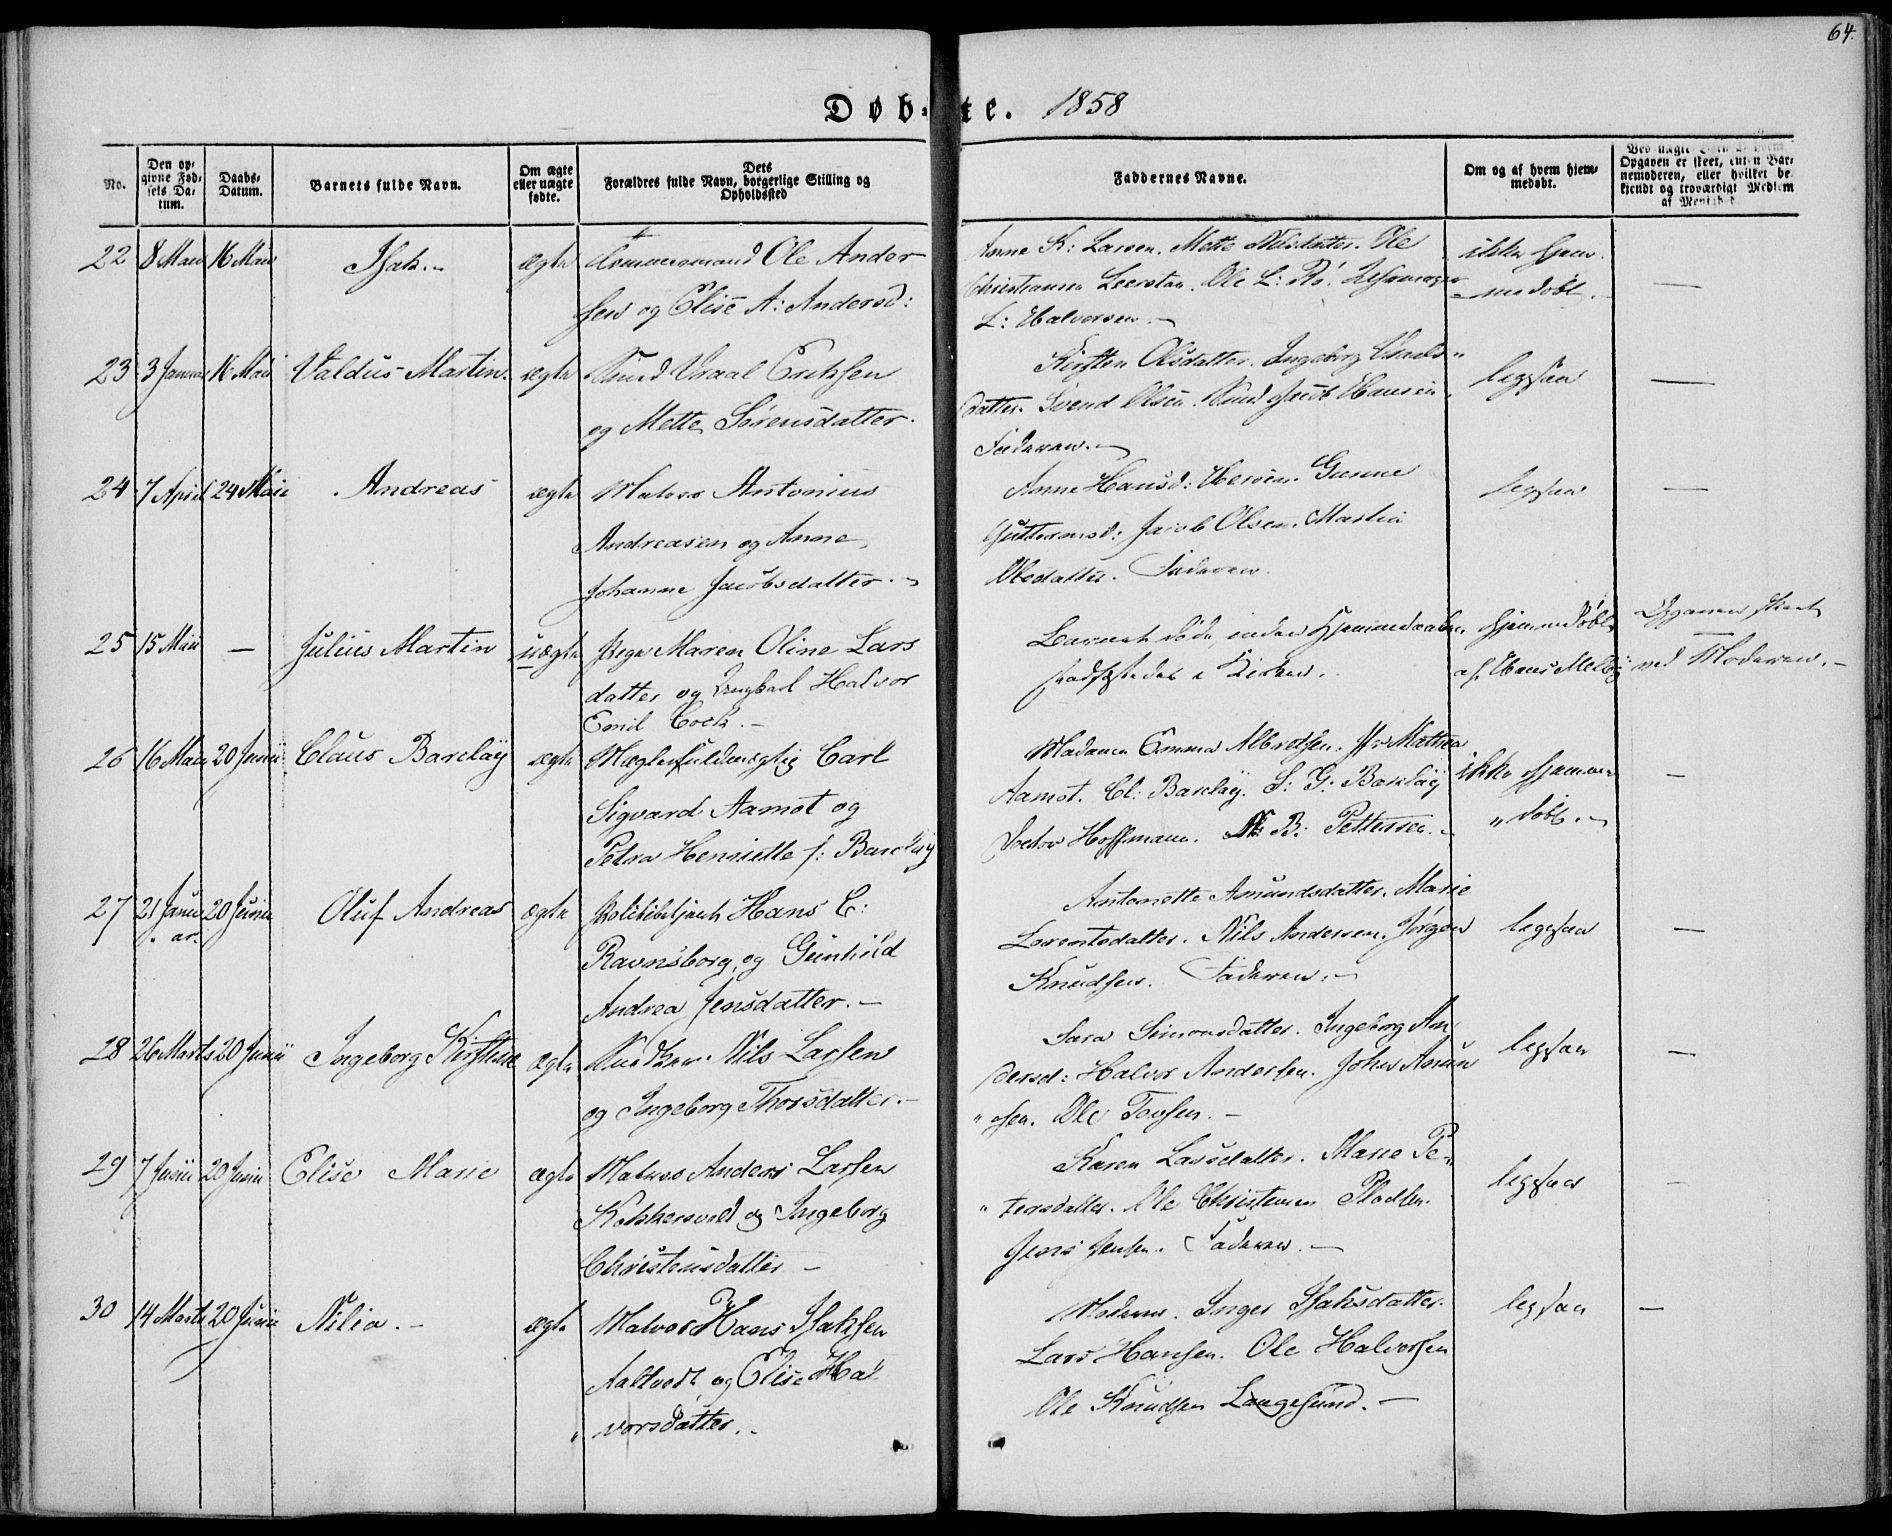 64.
Døb-te. 1858
No.
Den op-
givne Fød-
sels Da-
tum.
Daabs-
Datum.
Barnets fulde Navn.
Om ægte
eller uægte
fødte.
Dets
Forældres fulde Navn, borgerlige Stilling og
Opholdssted
Faddernes Navne.
Om og af hvem hjem-
medøbt.
Opgaven er skeet, enten Bar-
nemoderen, eller hvilket be-
kjendt og troværdigt Medlem
22 8 Mars 16 Maii Isak.- ægte Tømmermand Ole Ander
sen og Elise A: Andersd:
Anne K: Larsen. Mette Nilsdatter. Ole
Christiansen Ole L: Rø.
L: Halvorsen.-
ikke hjem-
medøbt.-
23 3 Januar 16 Maii Valdus Martin. ægte Knud Vraal Eriksen
og Mette Sørensdatter.
Kirsten Olsdatter. Ingeborg
datter. Svend Olsen. Knud Jacob Hansen
Faderen.-
ligesaa
24 7 April 24 Maii Andreas ægte Matros Antonius
Andreasen og Anne
Johanne Jacobsdatter.-
Anne Hansd: Iversen. Gunne
Guttormsd: Jacob Olsen. Martia
Olsdatter. Faderen.
ligesaa
25 15 Maii - Julius Martin uægte Pige Maren Oline Lars
datter og Ungkarl Halvor
Emil Cock.-
Barnet døde inden Hjemmedaaben
stadfæstedes i Kirken.
Hjemmedøbt
af Hans Melby
Opgaven skeet
ved Moderen.-
26 16 Mars 20 Junii Claus Barclay ægte Mæglerfuldmægtig Carl
Sigvard Aamot og
Petra Henriette f: Barclay
Madame Emma Albretsen. Jfr Mathea
Aamot. Cl: Barclay. S: G: Barclay
Doctor Hoffmann. N: B: Pettersen.-
ikke hjemme-
døbt.-
27 21 Janu
ar. 20 Junii Oluf Andreas ægte Politibetjent Hans C:
Ravnsborg, og Gunhild
Andrea Jensdatter.-
Antonette Amundsdatter. Marie
Lorentsdatter. Nils Andersen. Jørgen
Knudsen. Faderen.-
ligesaa
28 26 Marts 20 Junii Ingeborg Kirstine ægte Nils Larsen
og Ingeborg Thorsdatter.-
Sara Simonsdatter. Ingeborg An
dersd: Halvor Andersen. John Amun
sen. Ole Tovsen.-
ligesaa
29 7 Junii 20 Junii Elise Marie ægte Matros Anders Larsen
Kokkersvold og Ingeborg
Christensdatter -
Karen Larsdatter. Marie Pe-
tersdatter. Ole Christensen
Jens Jensen. Faderen.-
ligesaa
30 14 Marts 20 Junii Nilia.- ægte Matros Hans Isaksen
Aaltvedt og Elise Hal
vorsdatter.-
Moderen. Inger Isaksdatter.
Lars Hansen. Ole Halvorsen
Ole Knudsen Langesund.-
ligesaa